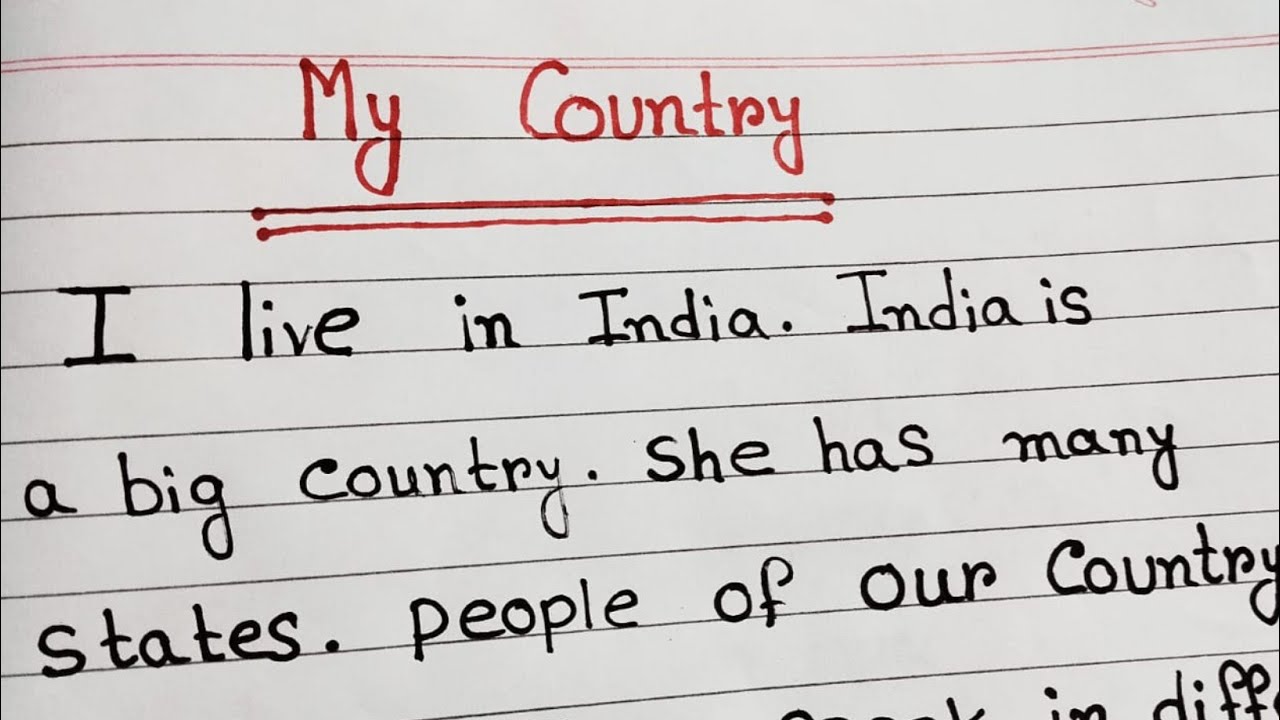 My Country
I live in India. India is
a big country. She has many
states. people of our Country
in